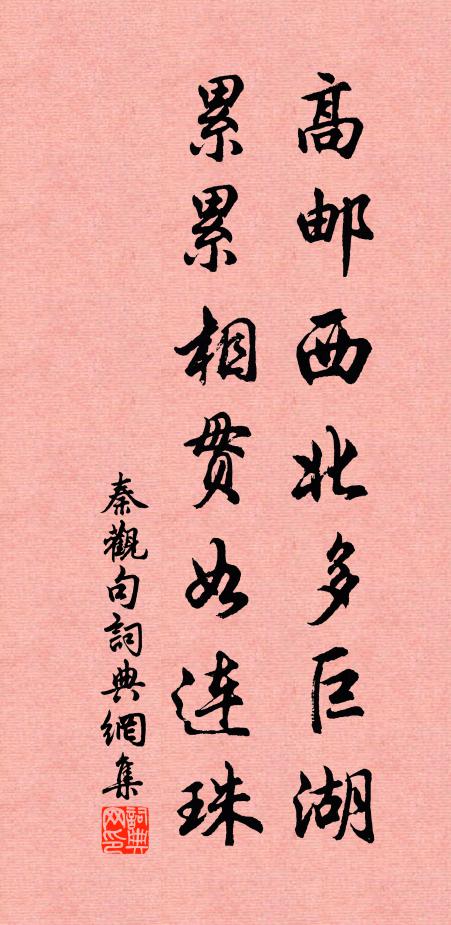 高邮西北多巨湖
累累相贯如连珠
秦觀句詞典網集
詞典
网印